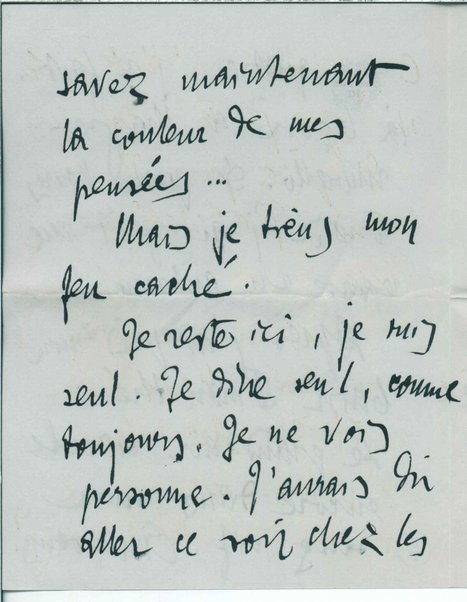 savez maintenant
la couleur de mes
pensées...
Mais je tiens mon
jeu caché.
Je reste ici, je suis
seul. Je dîne seul, comme
toujours. Je ne vois
personne. J'aurais dû
aller ce soir chez les